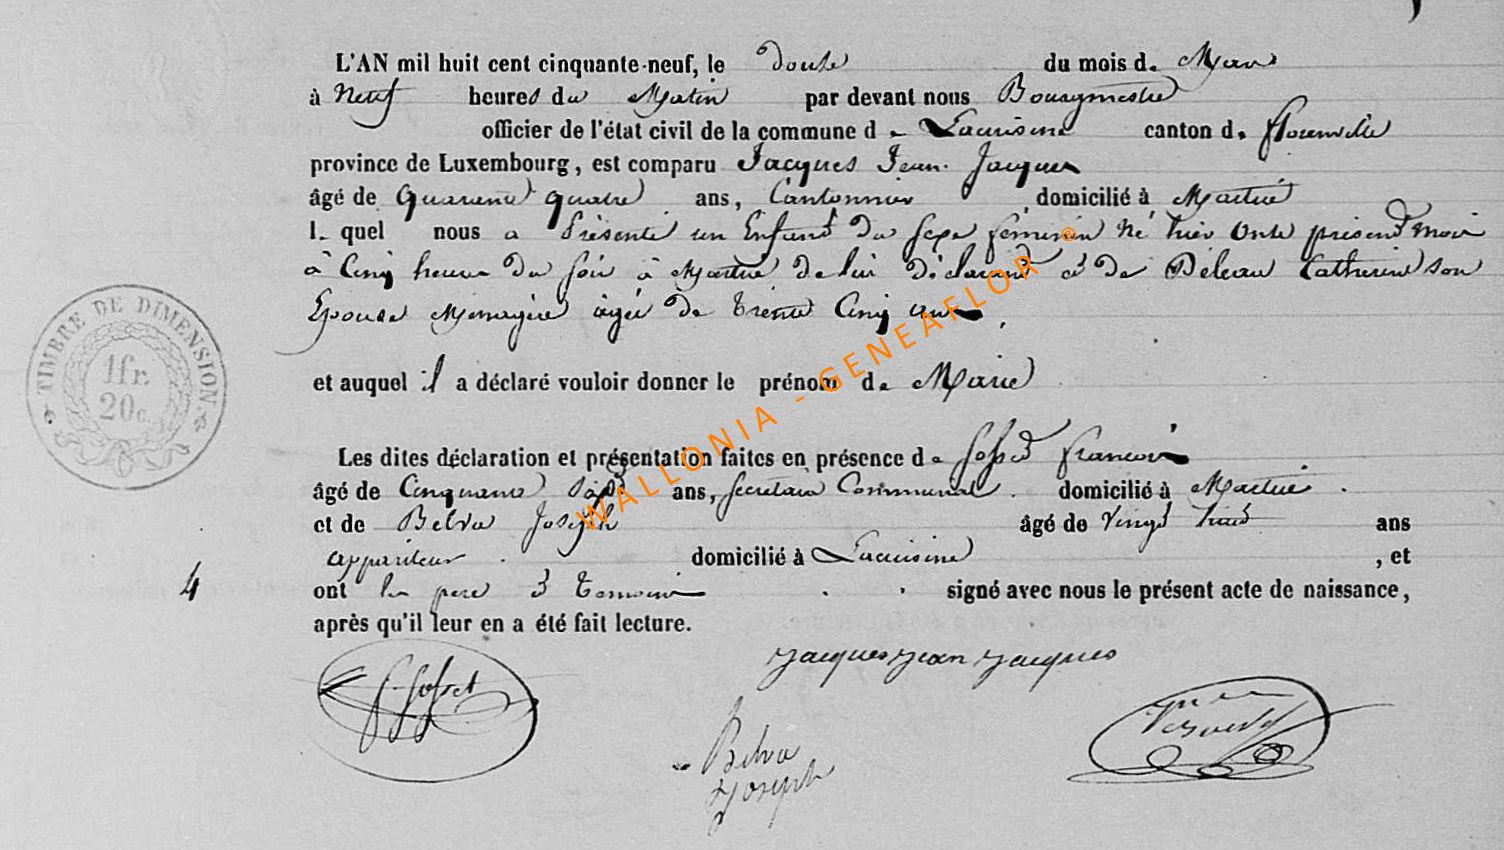 L'AN mil huit cent cinquante-neuf, le douze du mois de Mars
à Neuf heures du Matin par devant nous Bourgmestre
officier de l'état civil de la commune de Lacuisine canton de florenville
province de Luxembourg, est comparu Jacques Jean Jacques
âgé de Quarente quatre ans, Cantonnier domicilié à Martué
lequel nous a Présenté un Enfant du sexe feminin né hier onze présent mois
à Cinq heures du soir à Martué de lui déclarant et de Catherine son
Epouse Menagère agée de trente Cinq ans
et auquel il a déclaré vouloir donner le prénom de Marie
Les dites déclaration et présentation faites en présence de Gofset francois
âgé de Cinquante Sept ans, Secretaire Communal domicilié à Martué
et de Belva Joseph âgé de Vingt huit ans
appariteur domicilié à Lacuisine, et
4 ont les pere et temoins signé avec nous le présent acte de naissance,
après qu'il leur en a été fait lecture.
TIMBRE DE DIMENSION
1 fr.
20 c.
Gofset
Jacques Jean Jacques
Belva
Joseph
© WALLONIA - GENEAFLOR